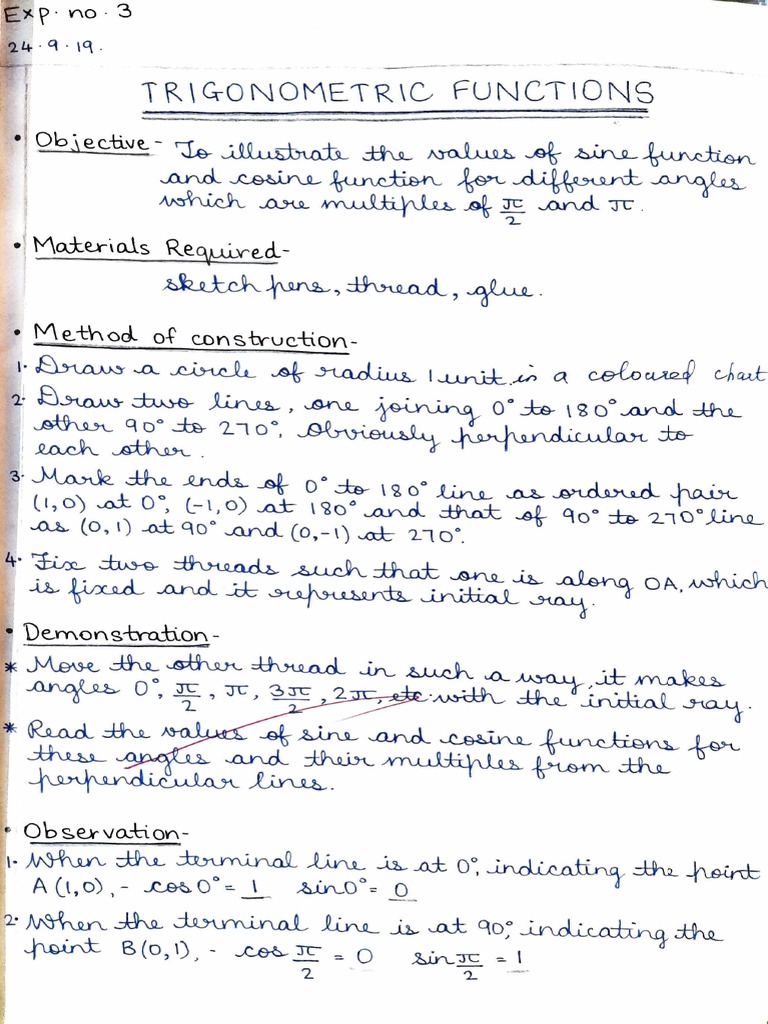 Exp. no. 3
24.9.19.
TRIGONOMETRIC FUNCTIONS
• Objective - To illustrate the values of sine function
and cosine function for different angles
which are multiples of π/2 and π.
• Materials Required-
sketch pens, thread, glue.
• Method of construction-
1. Draw a circle of radius 1 unit in a coloured chart
2. Draw two lines, one joining 0° to 180° and the
other 90° to 270°, obviously perpendicular to
each other.
3. Mark the ends of 0° to 180° line as ordered pair
(1,0) at 0°, (-1,0) at 180° and that of 90° to 270° line
as (0,1) at 90° and (0,-1) at 270°.
4. Fix two threads such that one is along OA, which
is fixed and it represents initial ray.
• Demonstration-
* Move the other thread in such a way, it makes
angles 0°, π/2, π, 3π/2, 2π, etc. with the initial ray.
* Read the values of sine and cosine functions for
these angles and their multiples from the
perpendicular lines.
• Observation-
1. When the terminal line is at 0°, indicating the point
A (1,0), - cos 0° = 1 sin 0° = 0
2. When the terminal line is at 90°, indicating the
point B (0,1), - cos π/2 = 0 sin π/2 = 1